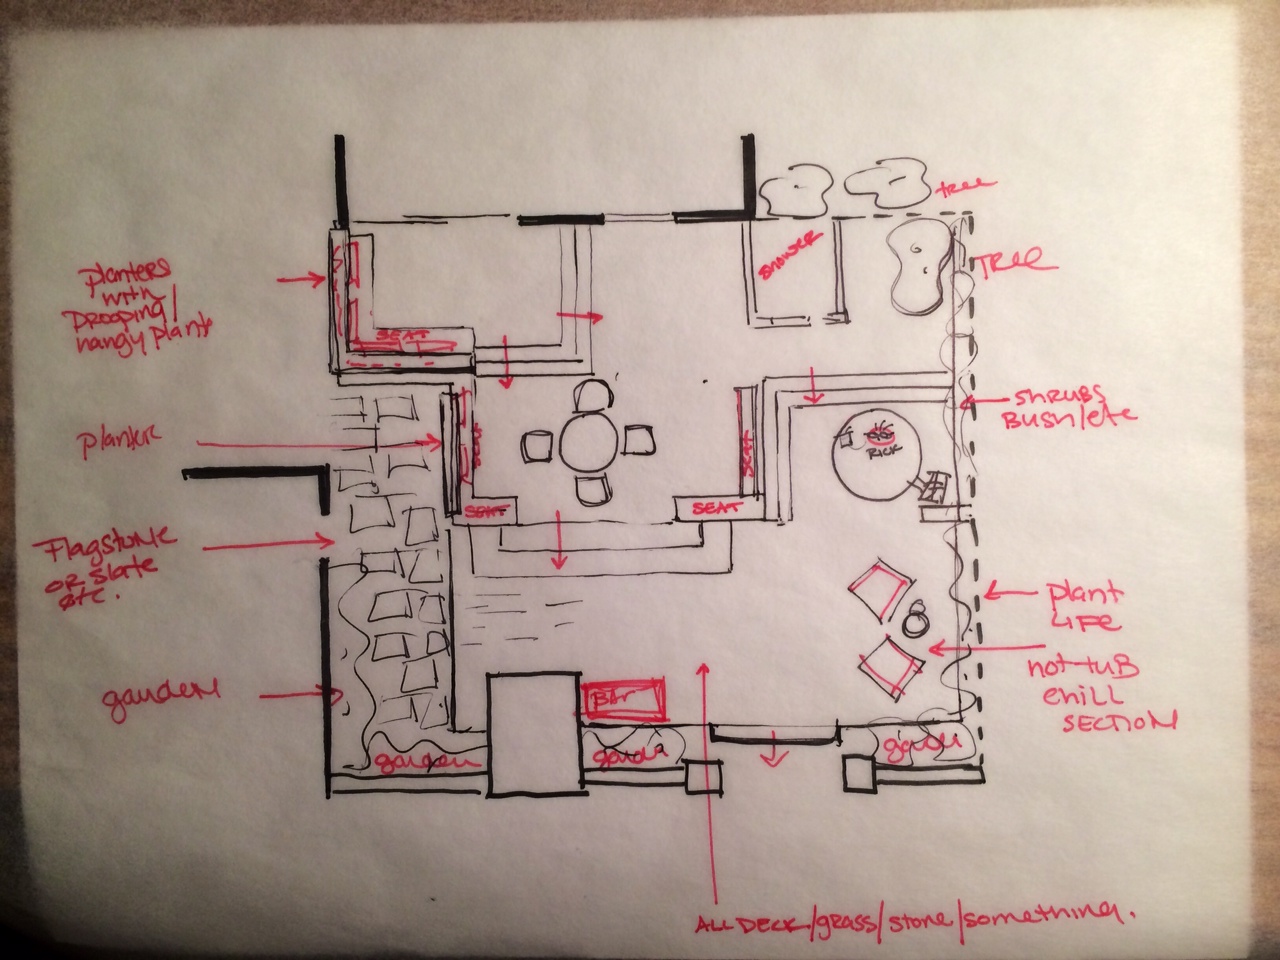 tree
TREE
SHOWER
planters
with
Drooping/
hangy plant
SEAT
SHRUBS
BUSH/etc
planter
SEAT
SEAT
RICK
SEAT
SEAT
Flagstone
OR slate
etc.
plant
LIFE
hot-tub
chill
SECTION
garden
Bar
garden
garden
garden
ALL DECK/grass/stone/something.